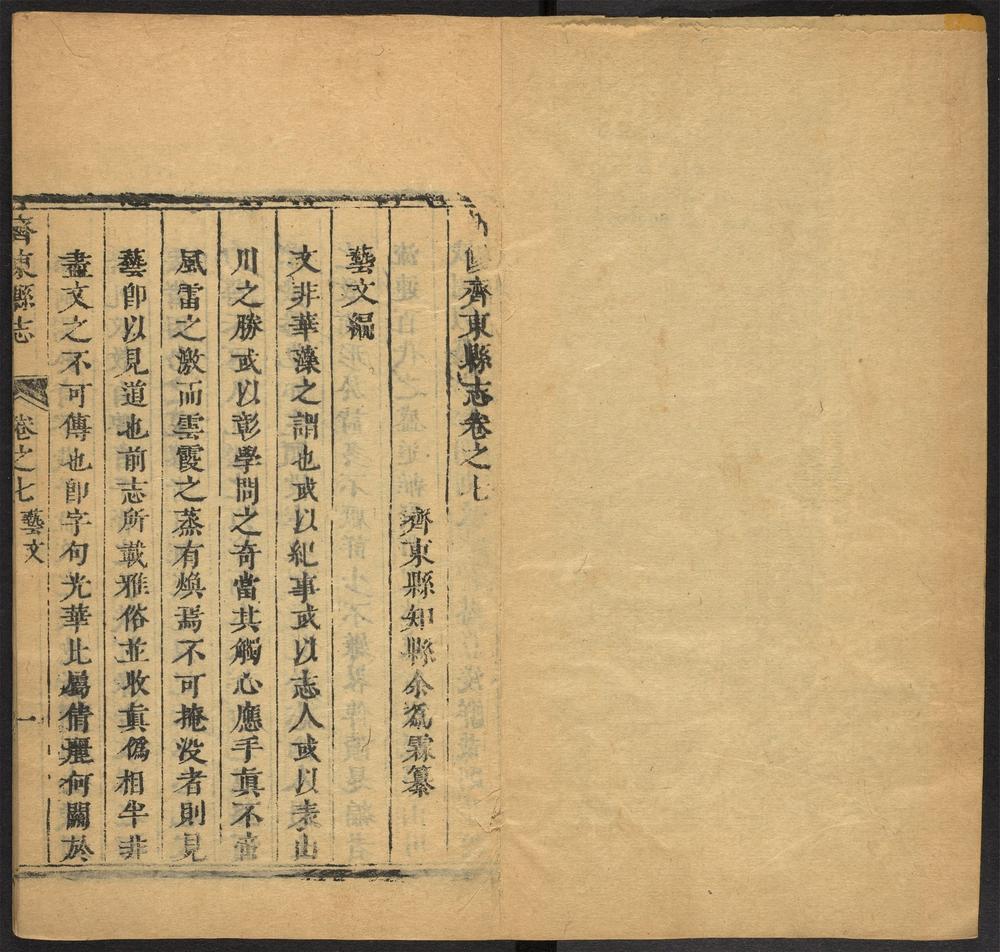 修齊東縣志卷之七
齊東縣知縣余為霖纂
藝文編
文非華藻之謂也或以紀事或以志人或以表山
川之勝或以彰學問之奇當其觸心應手真不啻
風雷之激而雲霞之蒸有煥焉不可掩没者則見
藝卽以見道也前志所載雅俗並收真僞相半非
盡文之不可傳也卽字句光華比屬倩麗何關於
齊東縣志
卷之七 藝文
一